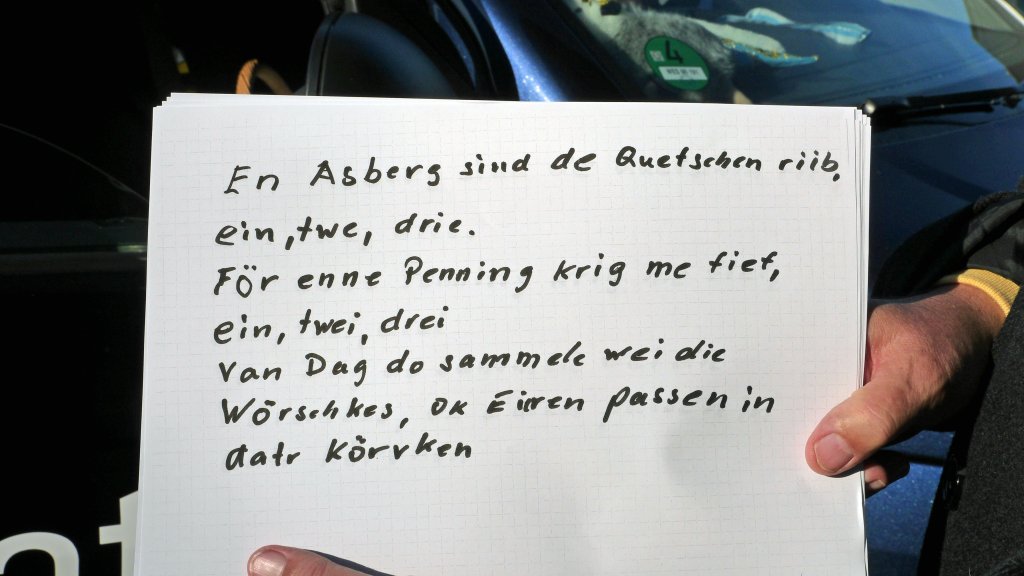 4
En Asberg sind de Quetschen riib,
ein, twe, drie.
För enne Penning krig me fief,
ein, twei, drei
van Dag do sammele wei die
Wörschkes, ok Eiren passen in
datr Körvken